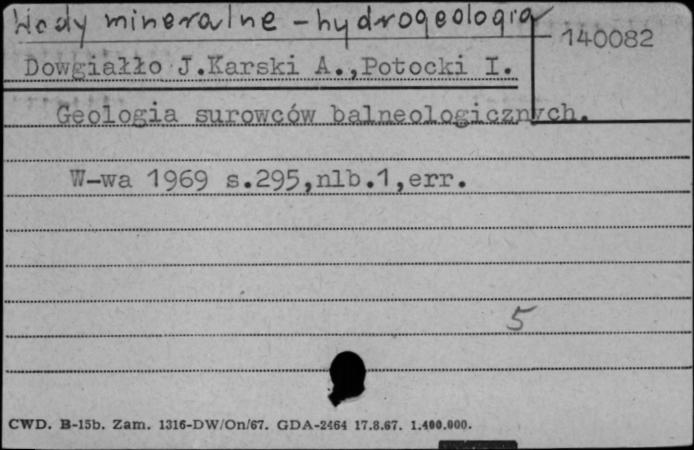 Wody mineralne - hydrogeologia
140082
Dowgiałło J.Karski A.,Potocki I.
Geologia surowców balneologicznych.
W-wa 1969 s.295,nlb.1,err.
5
CWD. B-15b. Zam. 1316-DW/On/67. GDA-2464 17.8.67. 1.400.000.